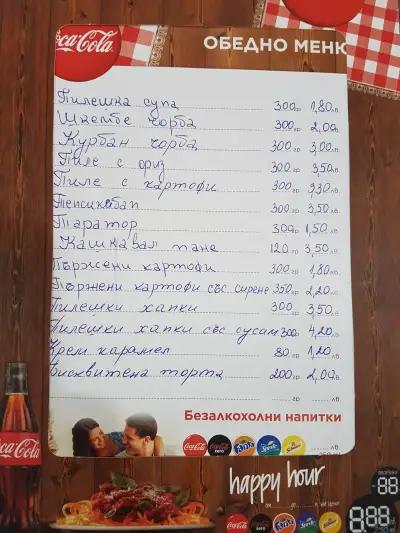 Coca-Cola
ОБЕДНО МЕНЮ
Пилешка супа 300гр 1,80лв.
Шкембе чорба 300гр 2,00лв.
Курбан чорба 300гр 3,00лв.
Пиле с ориз 300гр 3,50лв.
Пиле с картофи 300гр 3,30лв.
300гр 3,50лв.
Таратор 300гр 1,50лв.
Кашкавал пане 120гр 3,50лв.
Пържени картофи 300гр 1,80лв.
Пържени картофи със сирене 350гр 2,20лв.
Пилешки хапки 300гр 3,50лв.
Пилешки хапки със сусам 300гр 4,20лв.
Крем карамел 80гр 1,20лв.
Бисквитена торта 200гр 2,00лв.
гр лв.
Безалкохолни напитки
лв.
Coca-Cola
happy hour
88
888